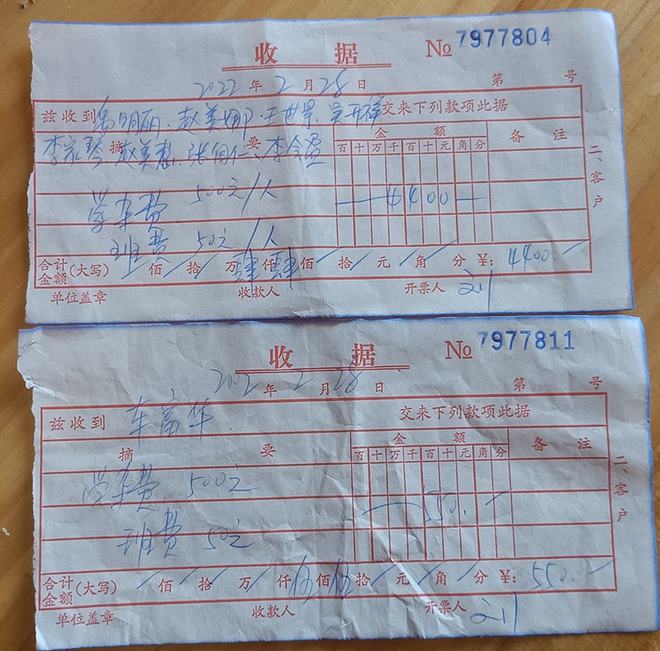 收 据 № 7977804
2022 年 2 月 28 日 第 号
兹收到 明丽、赵美娜、王世景、吴开祥 交来下列款项此据
李家琴、赵美惠、张伯仁、李会
摘 要 金 额 备 注
百 十 万 千 百 十 元 角 分
学车费 500元/人 4400
班费 50元/人
合计金额 (大写) 佰 拾 万 肆 仟 肆 佰 拾 元 角 分 ¥: 4400.
单位盖章 收款人 开票人
二、客户
收 据 № 7977811
2002 年 2 月 28 日 第 号
兹收到 车富华 交来下列款项此据
摘 要 金 额 备 注
百 十 万 千 百 十 元 角 分
学车费 500元
班费 50元 550.
合计金额 (大写) 佰 拾 万 仟 伍 佰 伍 拾 元 角 分 ¥: 550.
单位盖章 收款人 开票人
二、客户